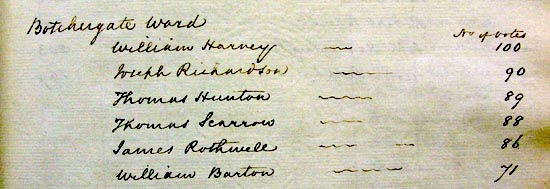 Botchergate Ward
No of votes
William Harvey 100
Joseph Richardson 90
Thomas Hunton 89
Thomas Scarrow 88
James Rothwell 86
William Barton 71